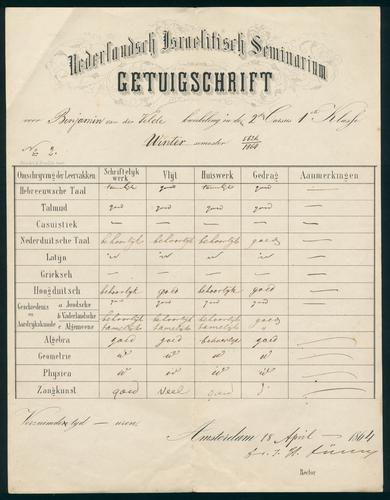 Nederlandsch Israelitisch Seminarium
GETUIGSCHRIFT
voor Benjamin van der Velde leerling in de 2de Cursus 1ste Klasse
Winter semester 1863/1864
No 2.
Omschrijving der Leervakken Schriftelijk werk Vlijt Huiswerk Gedrag Aanmerkingen
Hebreeuwsche Taal tamelijk goed tamelijk goed —
Talmud goed goed goed goed —
Casuistiek — — — — —
Nederduitsche Taal behoorlijk behoorlijk behoorlijk goed —
Latijn —
Grieksch — — — — —
Hoogduitsch behoorlijk goed behoorlijk goed —
Geschiedenis en Aardrijkskunde
a Joodsche goed goed goed goed —
b Vaderlandsche behoorlijk behoorlijk behoorlijk goed —
c Algemeene tamelijk tamelijk tamelijk
Algebra goed goed behoorlijk goed
Geometrie
Physica
Zangkunst goed veel goed
Verzuimden tyd — uren.
Amsterdam 18 April — 1864
Rector